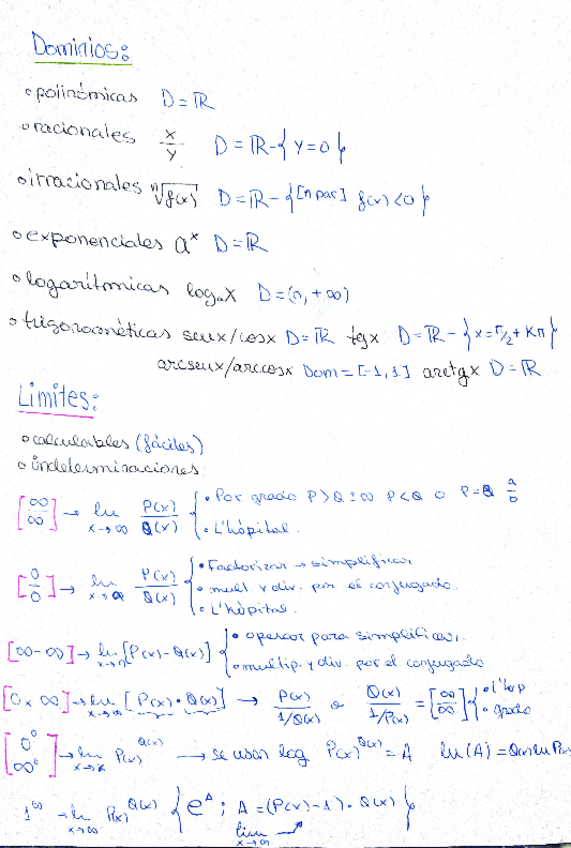 Dominios:
• polinómicas D = ℝ
• racionales x/y D = ℝ - { y = 0 }
• irracionales ⁿ√f(x) D = ℝ - { [n par] f(x) < 0 }
• exponenciales aˣ D = ℝ
• logarítmicas logₐx D = (0, +∞)
• trigonométricas senx/cosx D = ℝ tgx D = ℝ - { x = π/2 + Kπ }
arcsenx/arccosx Dom = [-1, 1] arctgx D = ℝ
Limites:
• calculables (fáciles)
• indeterminaciones:
[∞/∞] → lim x→∞ P(x)/Q(x) { • Por grado P>Q ±∞ P<Q 0 P=Q a/b
• L'hôpital.
[0/0] → lim P(x)/Q(x) { • Factorizar → simplificar
• mult. y div. por el conjugado.
• L'hôpital.
[∞-∞] → lim [P(x) - Q(x)] { • operar para simplificar.
• multip. y div. por el conjugado
[0 × ∞] → lim [P(x) · Q(x)] → P(x)/1/Q(x) o Q(x)/1/P(x) = [∞/∞] { • L'hop
• grado
[0⁰ ∞⁰] → lim P(x)^Q(x) → se usar log P(x)^Q(x) = A ln(A) = Q(x) ln P(x)
1^∞ → lim x→∞ P(x)^Q(x) { e^A ; A = (P(x) - 1) · Q(x) }
lim x→∞